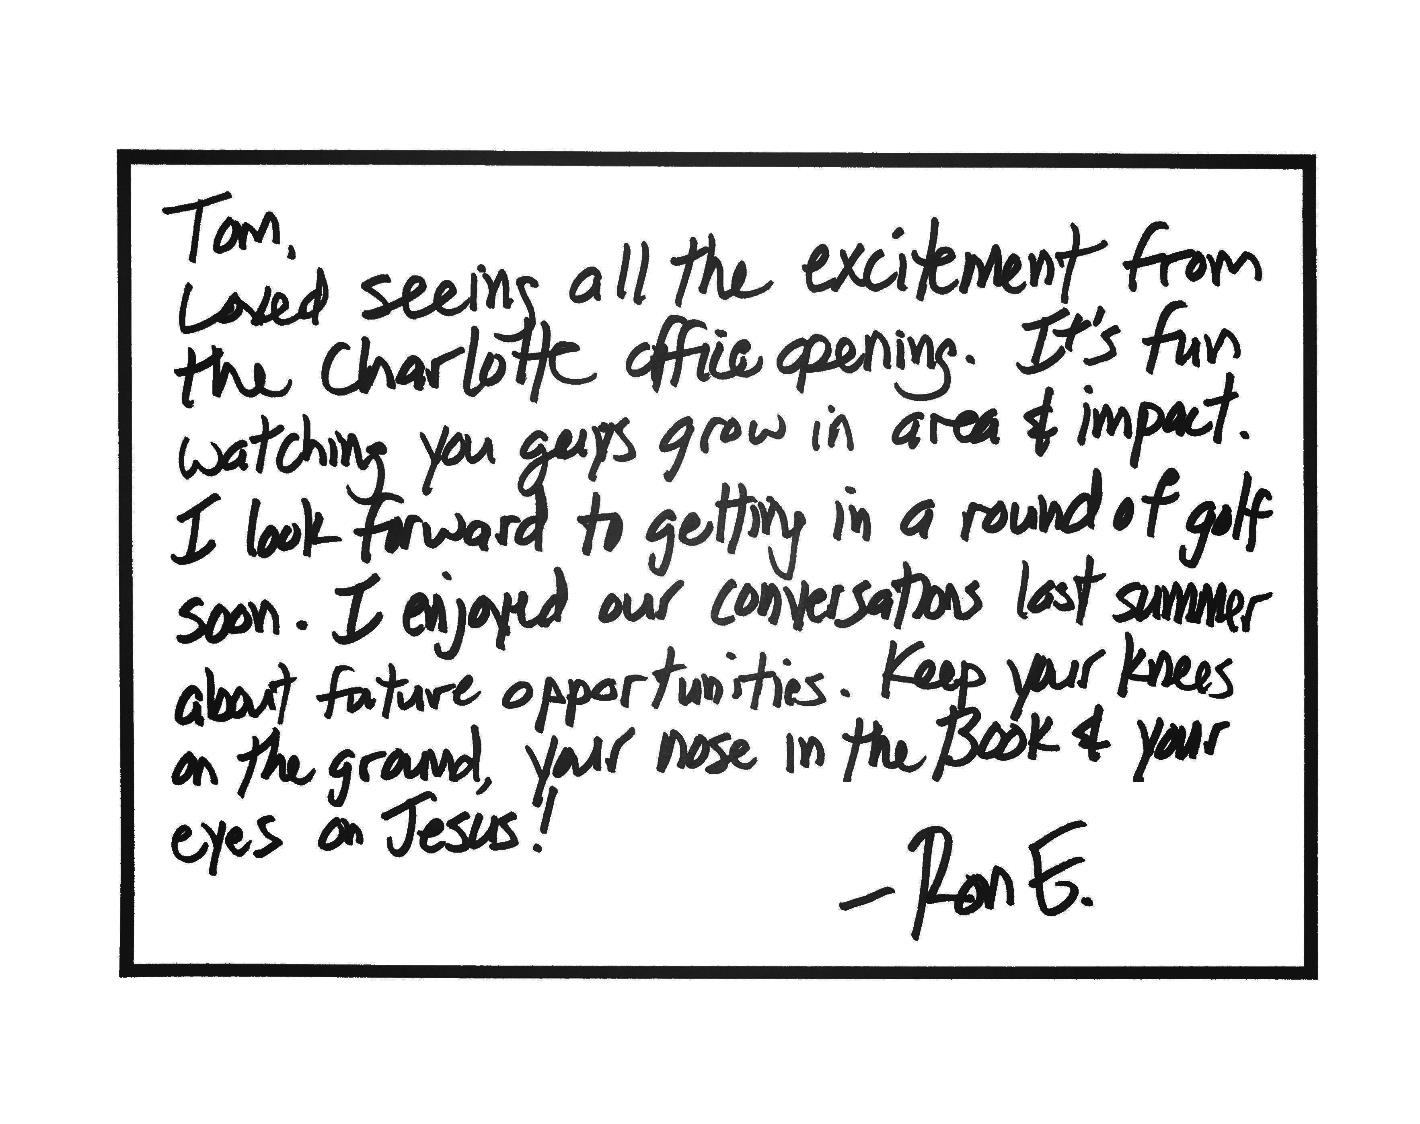 Tom,
Loved seeing all the excitement from
the Charlotte office opening. It's fun
watching you guys grow in area & impact.
I look forward to getting in a round of golf
soon. I enjoyed our conversations last summer
about future opportunities. Keep your knees
on the ground, your nose in the Book & your
eyes on Jesus!
— Ron E.